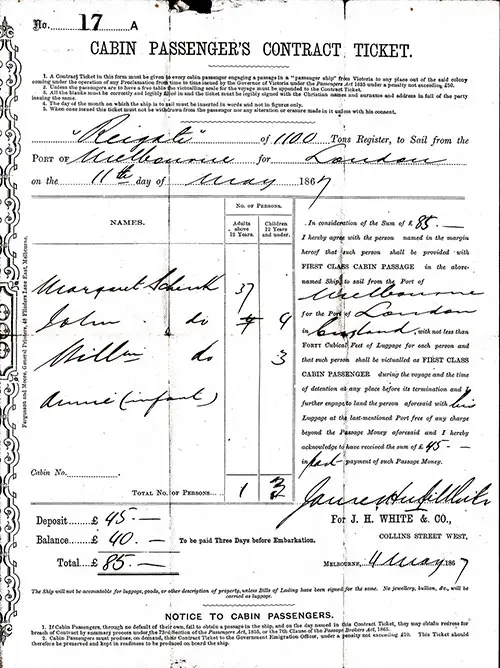 No. 17 A
CABIN PASSENGER'S CONTRACT TICKET.
1. A Contract Ticket in this form must be given to every cabin passenger engaging a passage in a "passenger ship" from Victoria to any place out of the said colony
coming under the operation of any Proclamation from time to time issued by the Governor of Victoria under the Passengers Act 1855 under a penalty not exceeding £50.
2. Unless the passengers are to have a free table the victualling scale for the voyage must be appended to the Contract Ticket.
3. All the blanks must be correctly and legibly filled in and the ticket must be legibly signed with the Christian names and surname and address in full of the party
issuing the same.
4. The day of the month on which the ship is to sail must be inserted in words and not in figures only.
5. When once issued this ticket must not be withdrawn from the passenger nor any alteration or erasure made in it unless with his consent.
"Reigate" of 1100 Tons Register, to Sail from the
PORT OF Melbourne for London
on the 11th day of May 1867
NAMES.
No. OF PERSONS.
Adults above 12 Years.
Children 12 Years and under.
Margaret Schenk 37
John do 4
Will do 3
Annie (infant)
Cabin No.
TOTAL NO. OF PERSONS.... 1 3
In consideration of the Sum of £ 85.—
I hereby agree with the person named in the margin
hereof that such person shall be provided with
FIRST CLASS CABIN PASSAGE in the above-
named Ship, to sail from the Port of
Melbourne
for the Port of London
in England, with not less than
FORTY Cubical Feet of Luggage for each person and
that such person shall be victualled as FIRST CLASS
CABIN PASSENGER during the voyage and the time
of detention at any place before its termination and I
further engage to land the person aforesaid with his
Luggage at the last-mentioned Port free of any charge
beyond the Passage Money aforesaid and I hereby
acknowledge to have received the sum of £ 45 —
in part payment of such Passage Money.
For J. H. WHITE & CO.,
COLLINS STREET WEST,
MELBOURNE, 4 May 1867
Deposit......£ 45.—
Balance......£ 40.— To be paid Three Days before Embarkation.
Total....£ 85.—
The Ship will not be accountable for luggage, goods, or other description of property, unless Bills of Lading have been signed for the same. No jewellery, bullion, &c., will be
carried as luggage.
NOTICE TO CABIN PASSENGERS.
1. If Cabin Passengers, through no default of their own, fail to obtain a passage in the ship, and on the day named in this Contract Ticket, they may obtain redress for
breach of Contract by summary process under the 73rd Section of the Passengers Act, 1855, or the 7th Clause of the Passage Brokers Act, 1863.
2. Cabin Passengers must produce, on demand, their Contract Ticket to the Government Emigration Officer, under a penalty not exceeding £10. This Ticket should
therefore be preserved and kept in readiness to be produced on board the ship.
Fergusson and Moore, General Printers, 48 Flinders Lane East, Melbourne.